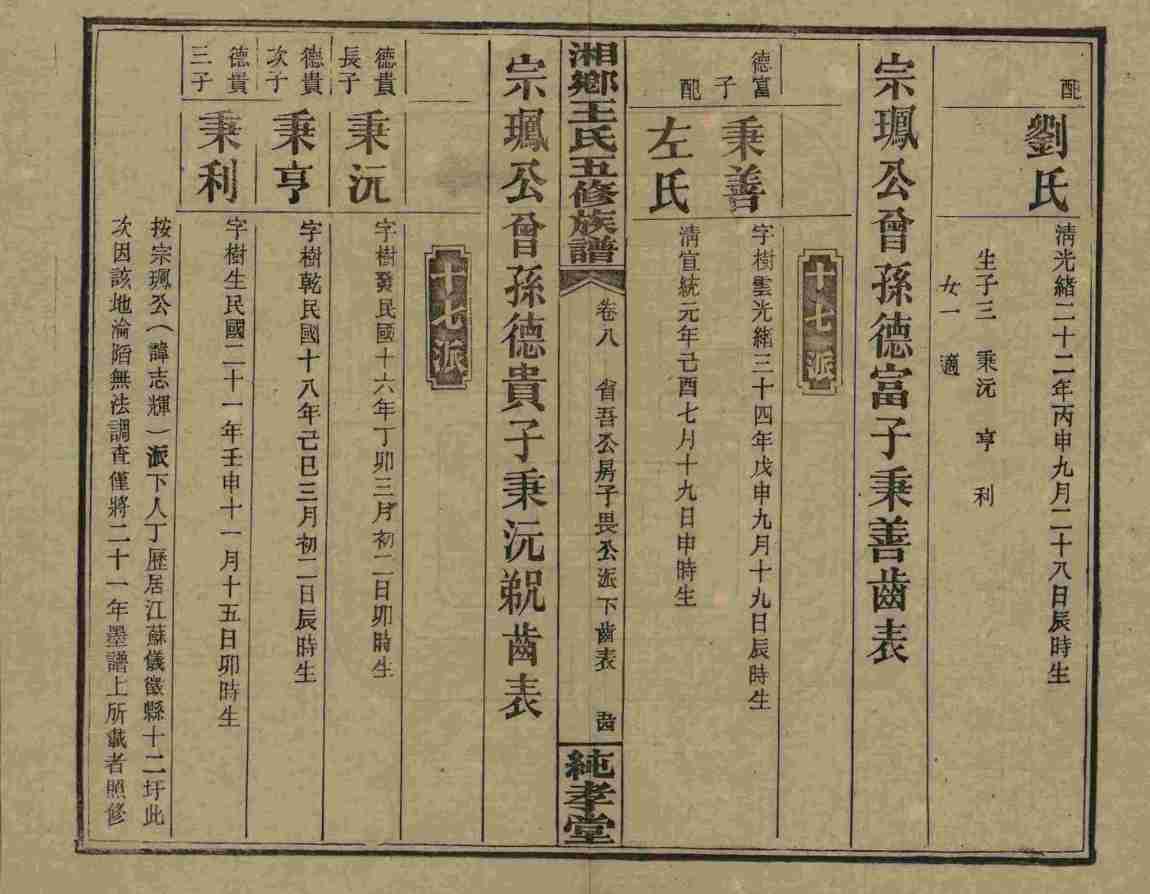 配
劉氏
清光緒二十二年丙申九月二十八日辰時生
生子三　秉沅　亨　利
女一　適
宗珮公曾孫德富子秉善齒表
十七派
德富
子
秉善
字樹雲光緒三十四年戊申九月十九日辰時生
配
左氏
清宣統元年己酉七月十九日申時生
湘鄉王氏五修族譜
卷八　省吾公房子畏公派下齒表
純孝堂
宗珮公曾孫德貴子秉沅齒表
十七派
德貴
長子
秉沅
字樹發民國十六年丁卯三月初二日卯時生
德貴
次子
秉亨
字樹乾民國十八年己巳三月初二日辰時生
德貴
三子
秉利
字樹生民國二十一年壬申十一月十五日卯時生
按宗珮公（諱志輝）派下人丁歷居江蘇儀徵縣十二圩此
次因該地淪陷無法調查僅將二十一年墨譜上所載者照修